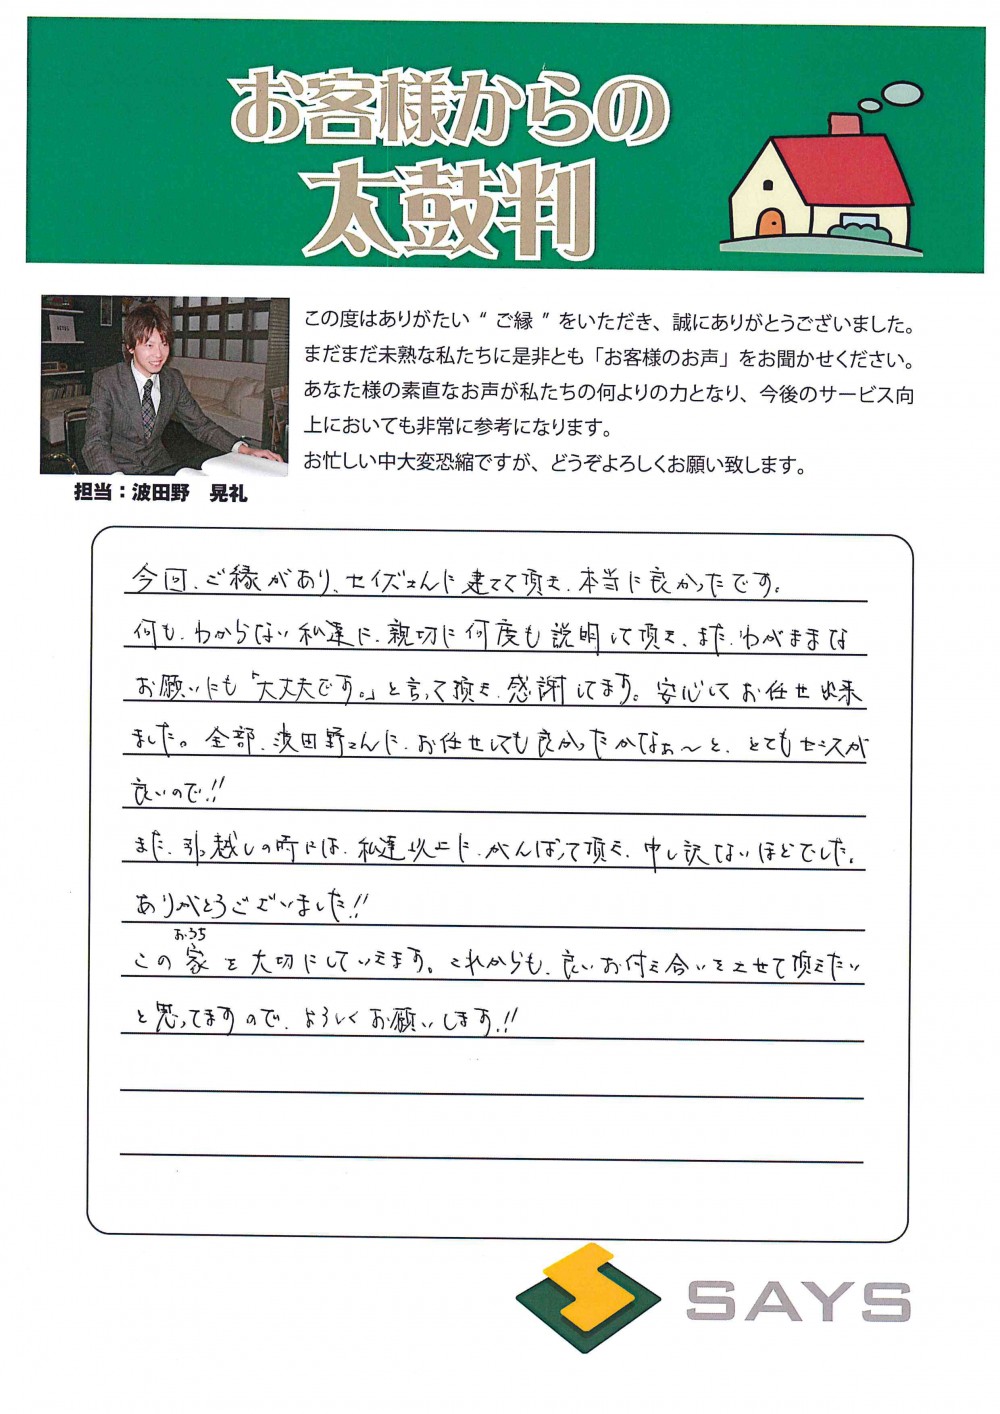 お客様からの
太鼓判
この度はありがたい“ ご縁 ”をいただき、誠にありがとうございました。
まだまだ未熟な私たちに是非とも「お客様のお声」をお聞かせください。
あなた様の素直なお声が私たちの何よりの力となり、今後のサービス向
上においても非常に参考になります。
お忙しい中大変恐縮ですが、どうぞよろしくお願い致します。
担当：波田野 晃礼
今回、ご縁があり、セイズさんに建てて頂き、本当に良かったです。
何も、わからない私達に、親切に何度も説明して頂き、また、わがままな
お願いにも「大丈夫です。」と言って頂き、感謝してます。安心してお任せ出来
ました。全部、波田野さんに、お任せしても良かったかなぁ〜と、とてもセンスが
良いので!!
また、引っ越しの時には、私達以上に、がんばって頂き、申し訳ないほどでした。
ありがとうございました!!
おうち
この家を大切にしていきます。これからも、良いお付き合いをさせて頂きたい
と思ってますので、よろしくお願いします!!
SAYS